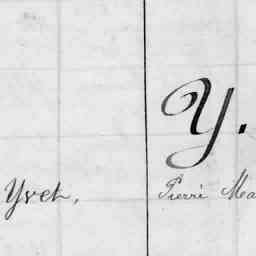 Y.
Yvet, Pierri Ma